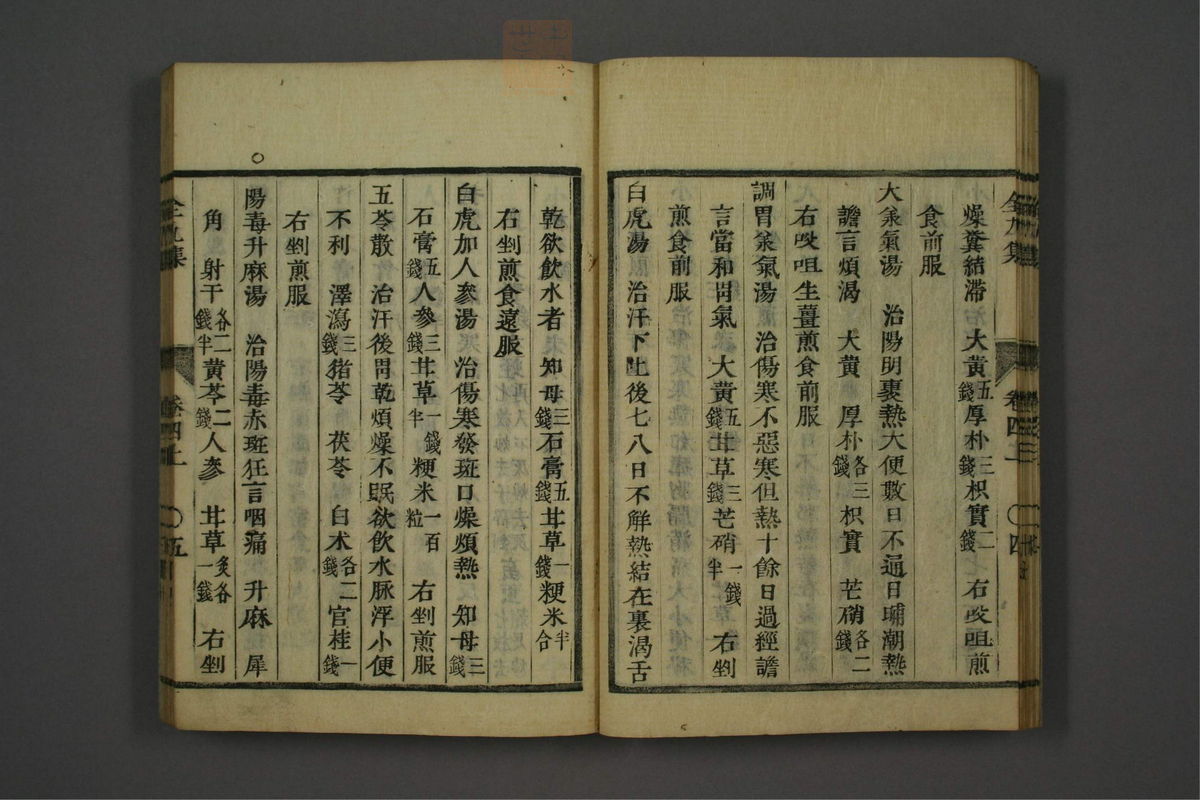 燥糞結滯　大黃五錢厚朴三錢枳實二錢　右㕮咀煎
食前服
大承氣湯　治陽明裏熱大便數日不通日晡潮熱
譫言煩渴　大黃　厚朴各三錢枳實　芒硝各二錢
右㕮咀生薑煎食前服
調胃承氣湯　治傷寒不惡寒但熱十餘日過經譫
言當和胃氣　大黃五錢甘草三錢芒硝一錢半　右剉
煎食前服
白虎湯　治汗下吐後七八日不解熱結在裏渴舌
乾欲飲水者　知母三錢石膏五錢甘草一錢粳米半合
右剉煎食遠服
白虎加人參湯　治傷寒發斑口燥煩熱　知母三錢
石膏五錢人參三錢甘草一錢半粳米一百粒　右剉煎服
五苓散　治汗後胃乾煩燥不眠欲飲水脉浮小便
不利　澤瀉三錢猪苓　茯苓　白术各二錢官桂一錢
右剉煎服
陽毒升麻湯　治陽毒赤斑狂言咽痛　升麻　犀
角　射干各二錢半黃芩二錢人參　甘草炙各一錢　右剉
卷四上　〇五